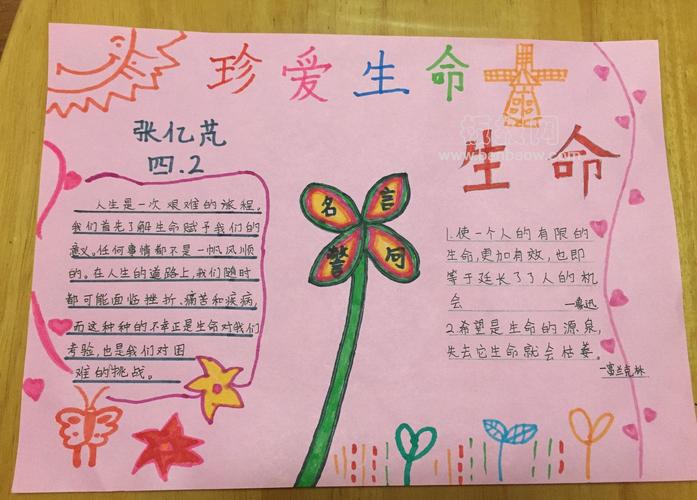 珍爱生命
张亿芃
四.2
生命
人生是一次艰难的旅程。
我们首先了解生命赋予我们的
意义。任何事情都不是一帆风顺
的。在人生的道路上,我们随时
都可能面临挫折、痛苦和疾病,
而这种种的不幸正是生命对我们
考验,也是我们对困
难的挑战。
名言
警句
1.使一个人的有限的
生命,更加有效,也即
等于延长了了人的机
会
—鲁迅
2.希望是生命的源泉,
失去它生命就会枯萎。
—富兰克林
扳报网
www.banbaow.com